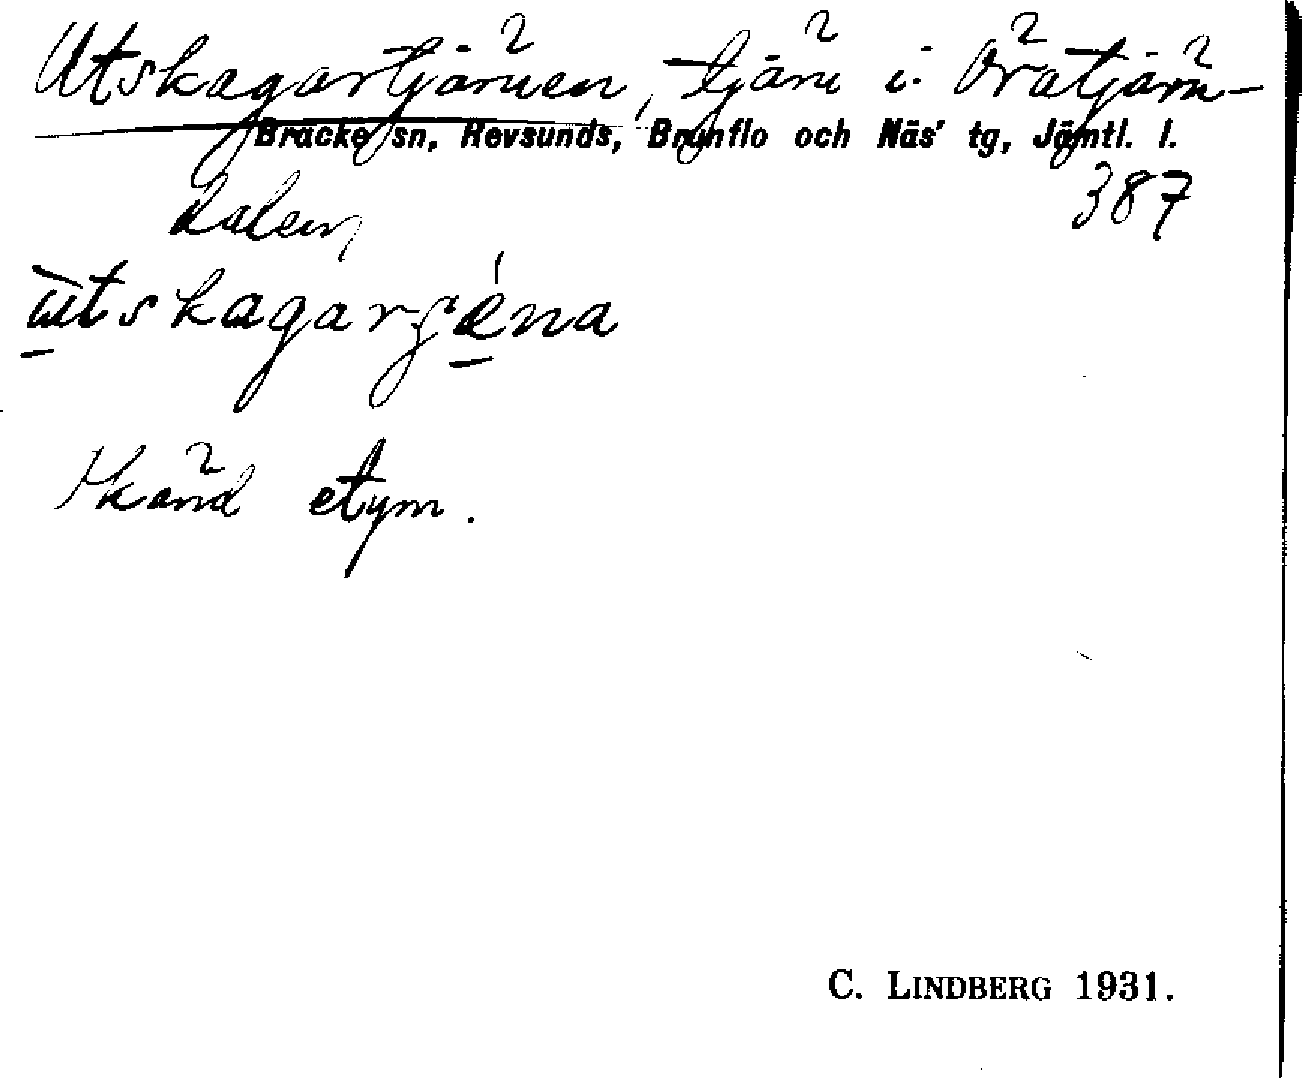 Utskagartjärnen, tjärn i Öratjärn-
Bräcke sn, Revsunds, Brunflo och Näs' tg, Jämtl. l.
dalen, 387
Okänd etym.
C. LINDBERG 1931.